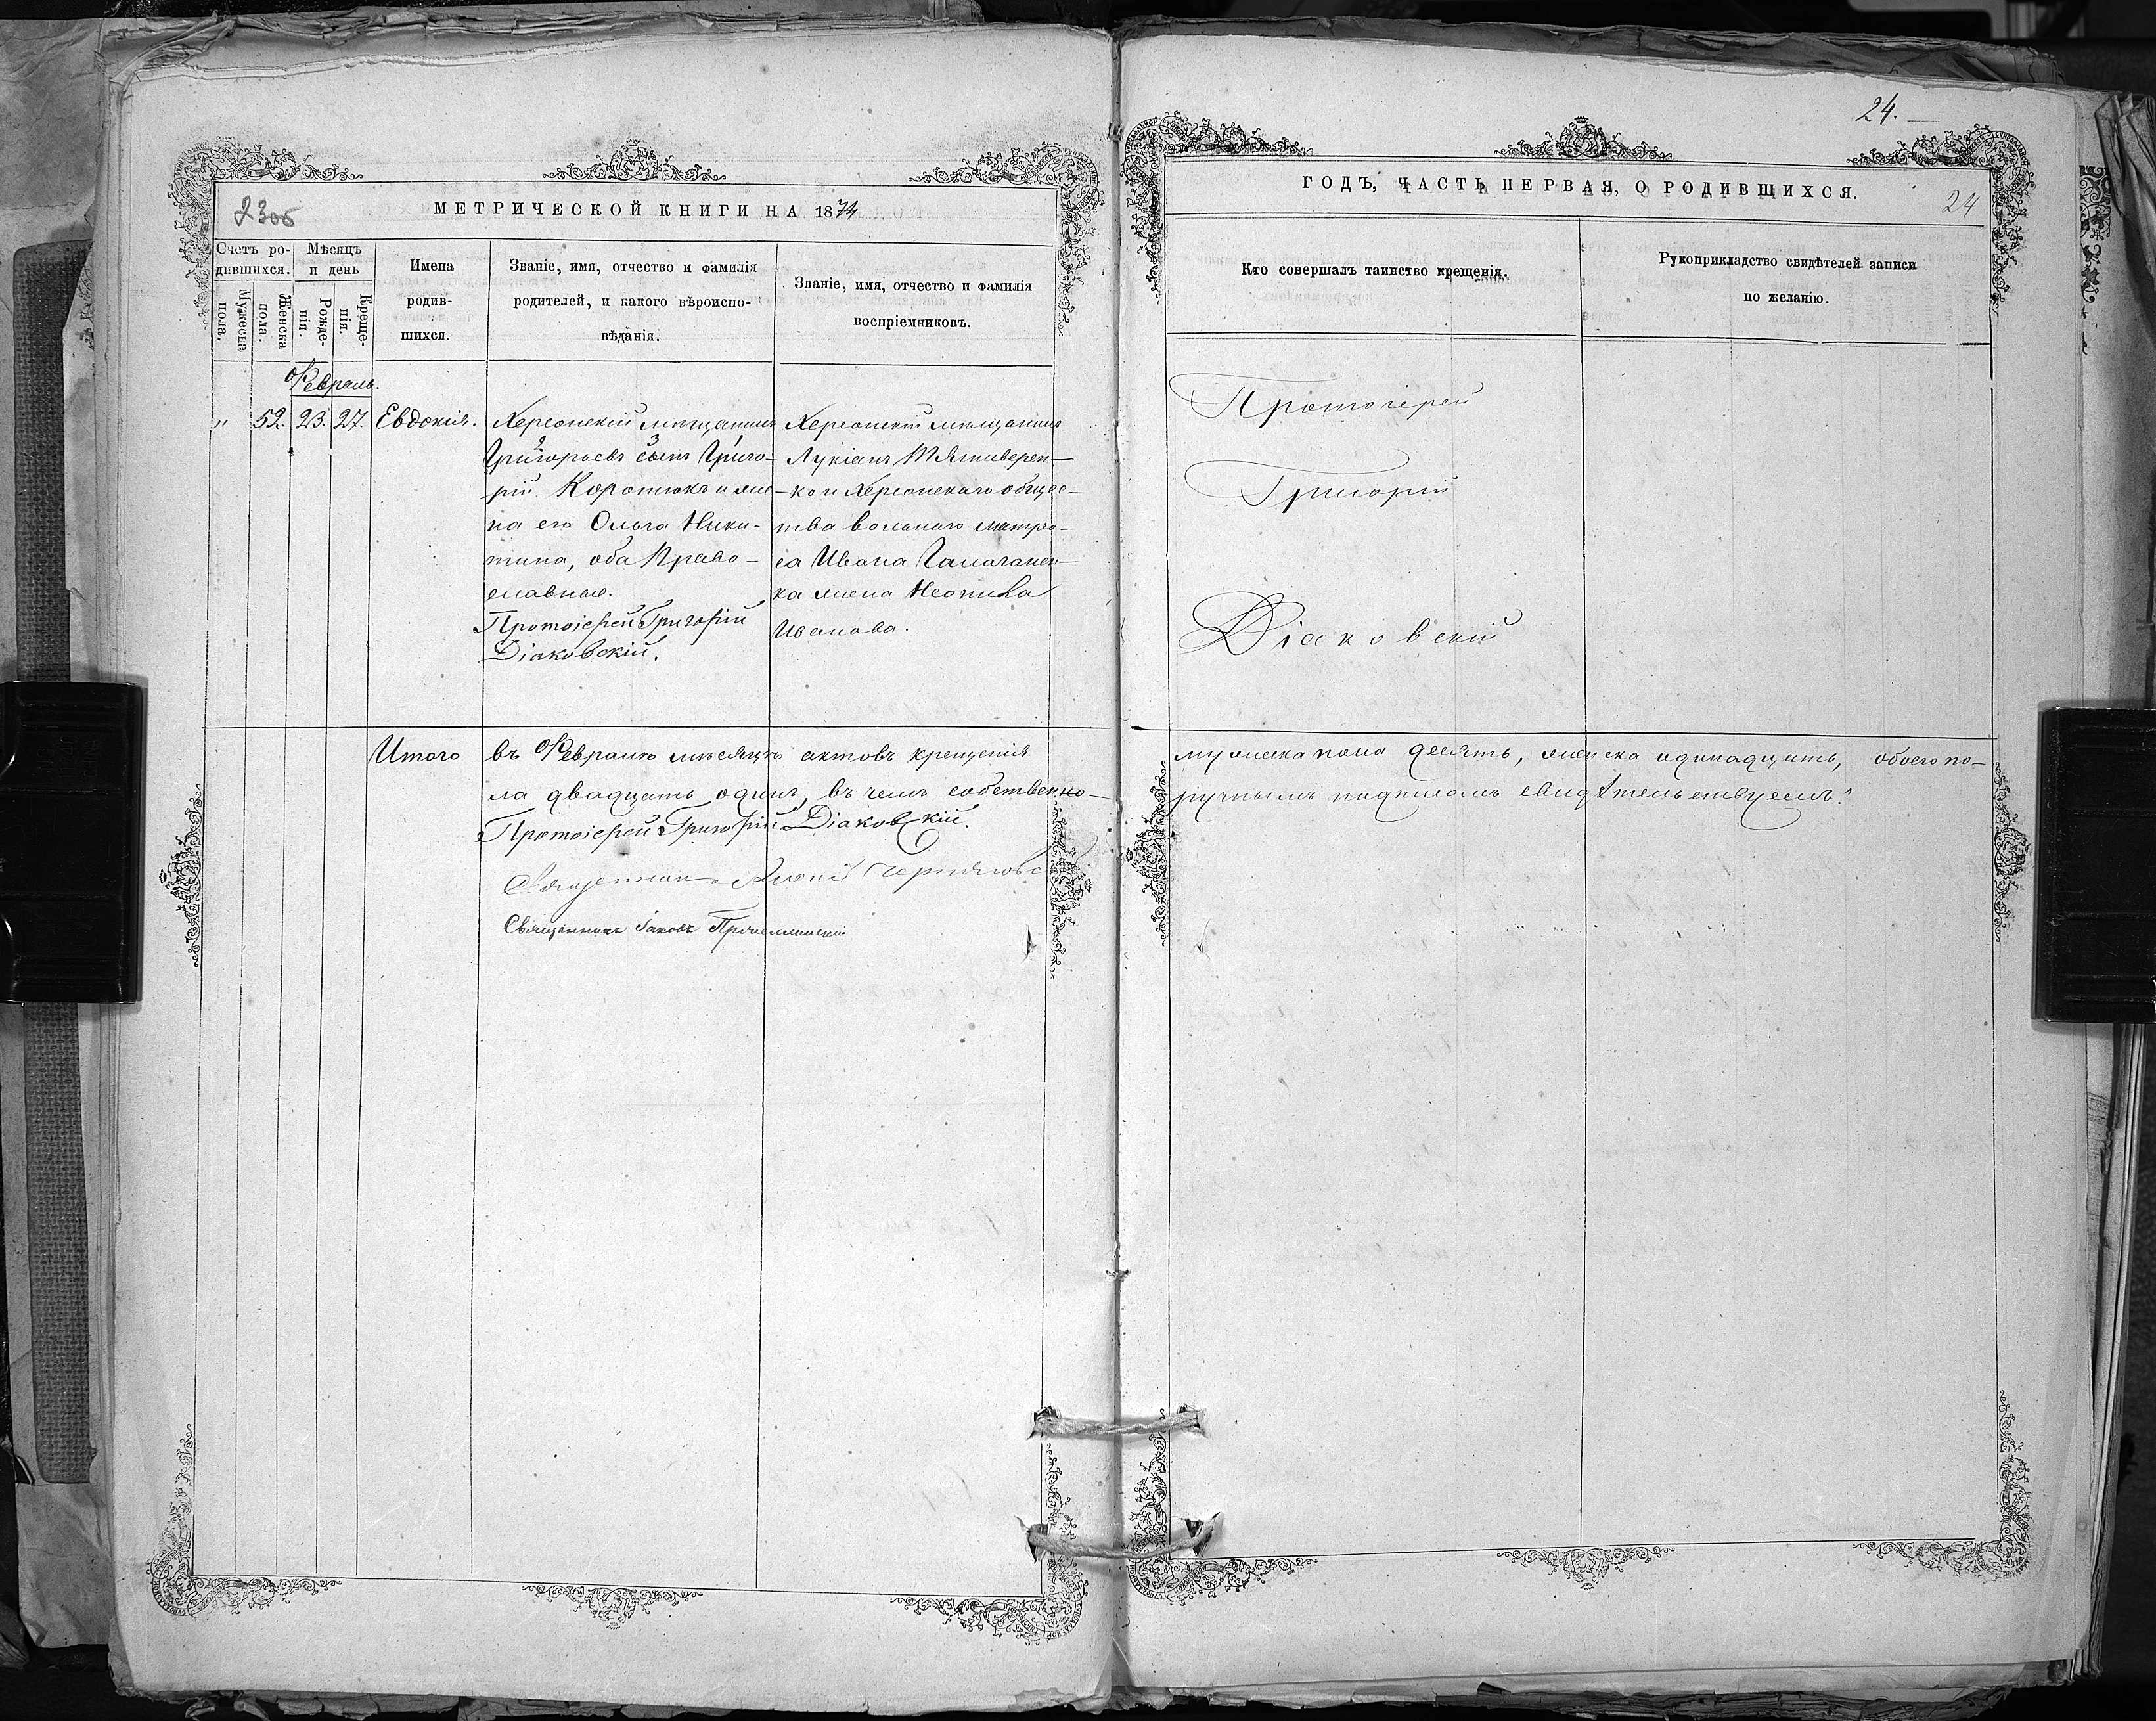 2306
МЕТРИЧЕСКОЙ КНИГИ НА 1874
Счетъ ро-
дившихся.
Мужеска
пола.
Женска
пола.
Мѣсяцъ
и день
Рожде-
нія.
Креще-
нія.
Имена
родив-
шихся.
Званіе, имя, отчество и фамилія
родителей, и какого вѣроиспо-
вѣданія.
Званіе, имя, отчество и фамилія
воспріемниковъ.
Февраль.
" 52. 23. 27. Евдокія.
Херсонскій мѣщанинъ
2 3 1
Григорьевъ сынъ Григо-
рій Коротюкъ и же-
на его Ольга Ники-
тина, оба Право-
славные.
Протоіерей Григорій
Діаковскій.
Херсонскій мѣщанинъ
Лукіанъ
ко и Херсонскаго общес-
тва вольнаго матро-
са Ивана
ка жена
Иванова.
Итого въ Февралѣ мѣсяцѣ актовъ крещенія
ла двадцать одинъ, въ чемъ собственно-
Протоіерей Григорій Діаковскій.
Священник
Священникъ Іаковъ
24.
ГОДЪ, ЧАСТЬ ПЕРВАЯ, О РОДИВШИХСЯ.
24
Кто совершалъ таинство крещенія.
Рукоприкладство свидѣтелей записи
по желанію.
Протоіерей
Григорій
Діаковскій
мужеска пола десять, женска одинадцать, обоего по-
ручнымъ подписомъ свидѣтельствуемъ: